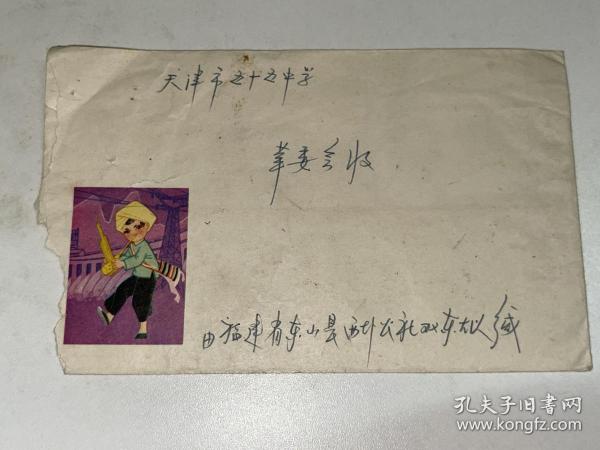 天津市五十五中学
革委会收
由福建省东山县西埔公社双东大队缄
孔夫子旧书网
www.kongfz.com